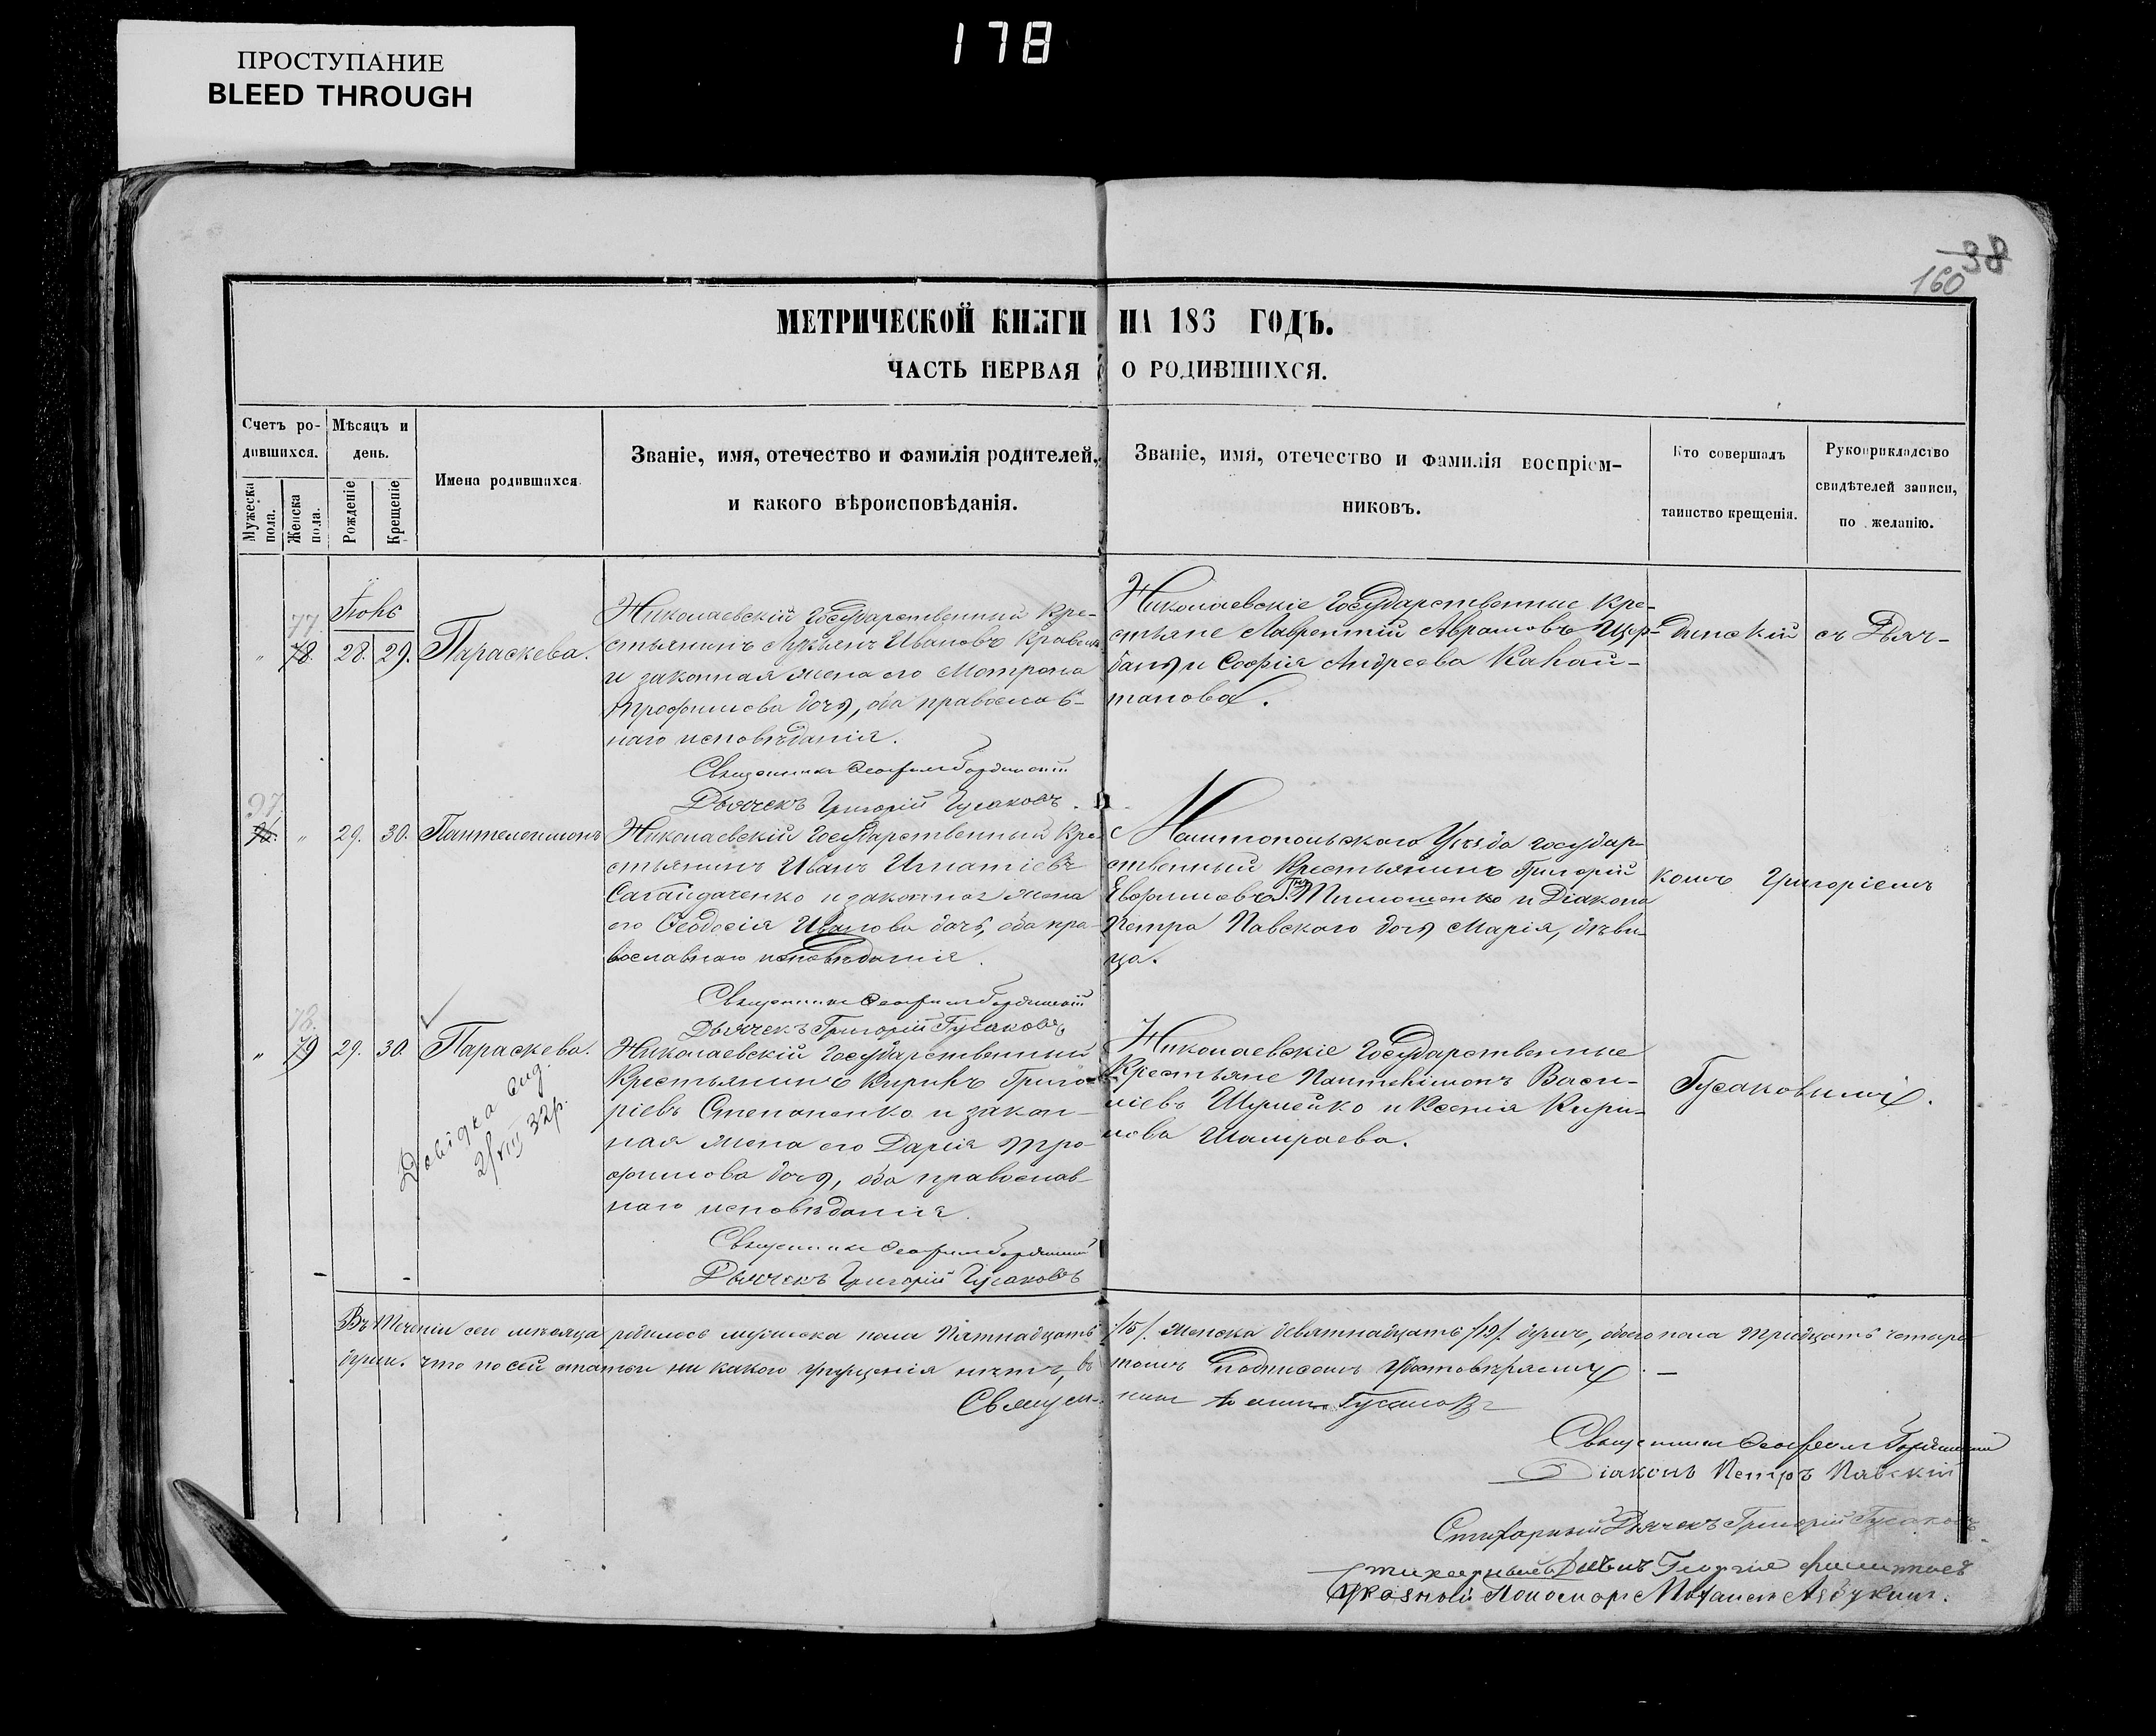 ПРОСТУПАНИЕ
BLEED THROUGH
178
38
160
МЕТРИЧЕСКОЙ КНИГИ НА 186 ГОДЪ.
ЧАСТЬ ПЕРВАЯ О РОДИВШИХСЯ.
Счетъ родившихся.
Мужеска пола.
Женска пола.
Мѣсяцъ и день.
Рожденіе
Крещеніе
Имена родившихся
Званіе, имя, отечество и фамилія родителей,
и какого вѣроисповѣданія.
Званіе, имя, отечество и фамилія воспріем-
никовъ.
Кто совершалъ
таинство крещенія.
Рукоприкладство
свидѣтелей записи,
по желанію.
77
78. 28. 29. Параскева.
Николаевскій Государственный Кре-
стьянинъ Ивановъ
и законная жена его Мотрона
Трофимова дочь, оба православ-
наго исповѣданія.
Священникъ
Дьячекъ Григорій Гусаковъ.
Николаевскіе Государственные Кре-
стьяне Лаврентій Аврамовъ Щер-
бань и Софія Андреева Капи-
танова.
съ Дьяч-
97
29. 30. Пантелеимонъ
Николаевскій Государственный Кре-
стьянинъ Иванъ Игнатіевъ
Сагайдаченко и законная жена
его Ѳеодосія Иванова дочь, оба пра-
вославнаго исповѣданія.
Священникъ
Дьячекъ Григорій Гусаковъ
Уѣзда государ-
ственный Крестьянинъ Григорій
Евфимовъ Тимошенко и Діакона
Петра Павскаго дочь Марія, дѣви-
ца.
комъ Григоріемъ
78.
79 29. 30. Параскева.
Довідка вид.
2/VIII 32р.
Николаевскій Государственный
Крестьянинъ Кирикъ Григо-
ріевъ Степаненко и закон-
ная жена его Дарія Тро-
фимова дочь, оба православ-
наго исповѣданія.
Священникъ
Дьячекъ Григорій Гусаковъ
Николаевскіе Государственные
Крестьяне Пантелимонъ Васи-
ліевъ Шумейко и Ксенія Кири-
лова Шамраева.
Гусаковымъ.
Въ теченіи сего мѣсяца родилось мужеска пола пятнадцать /15/. Женска девятнадцать /19/. душъ, обоего пола тридцать четыре
души. что по сей статьи ни какого упущенія нѣтъ, въ томъ подписомъ удостовѣряемъ. —
Священникъ Гусаковъ
Священникъ
Діаконъ Петръ Павскій
Стихарный Дьячекъ Григорій Гусаковъ.
Стихарный Дьячекъ
Указный Пономарь